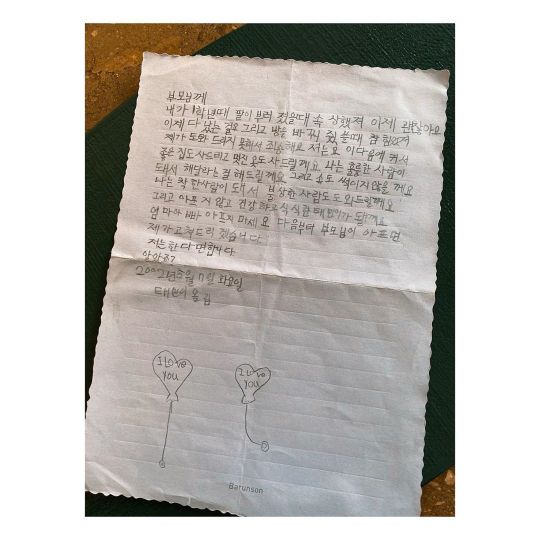 부모님께
내가 1학년때 팔이 부러 졌을때 속 상했죠 이제 괜찮아요
이제 다 났는 걸요 그리고 방을 바꿔 줬 을때 참 힘었죠
제가 도와 드리지 못해서 죄송해요 저는요 이다음에 커서
좋은 집도 사드리고 멋진 옷도 사 드릴께요 나는 훌륭한 사람이
돼서 해달라는 걸 해드릴께요 그리고 속도 썩이지 않을 께요
나는 착한사람이 돼서 불상한 사람도 도와드릴께요
그리고 아프 지 않고 건강 하고
엄마 아 빠 아프지 마세 요 다음부터 부모님이 아프면
제 가 고쳐드리 겠습니다
저는한 다 면합니다
2002년 월 일 화요일
태현이 올림
I LOVE
YOU
I LOVE
YOU
Barunson